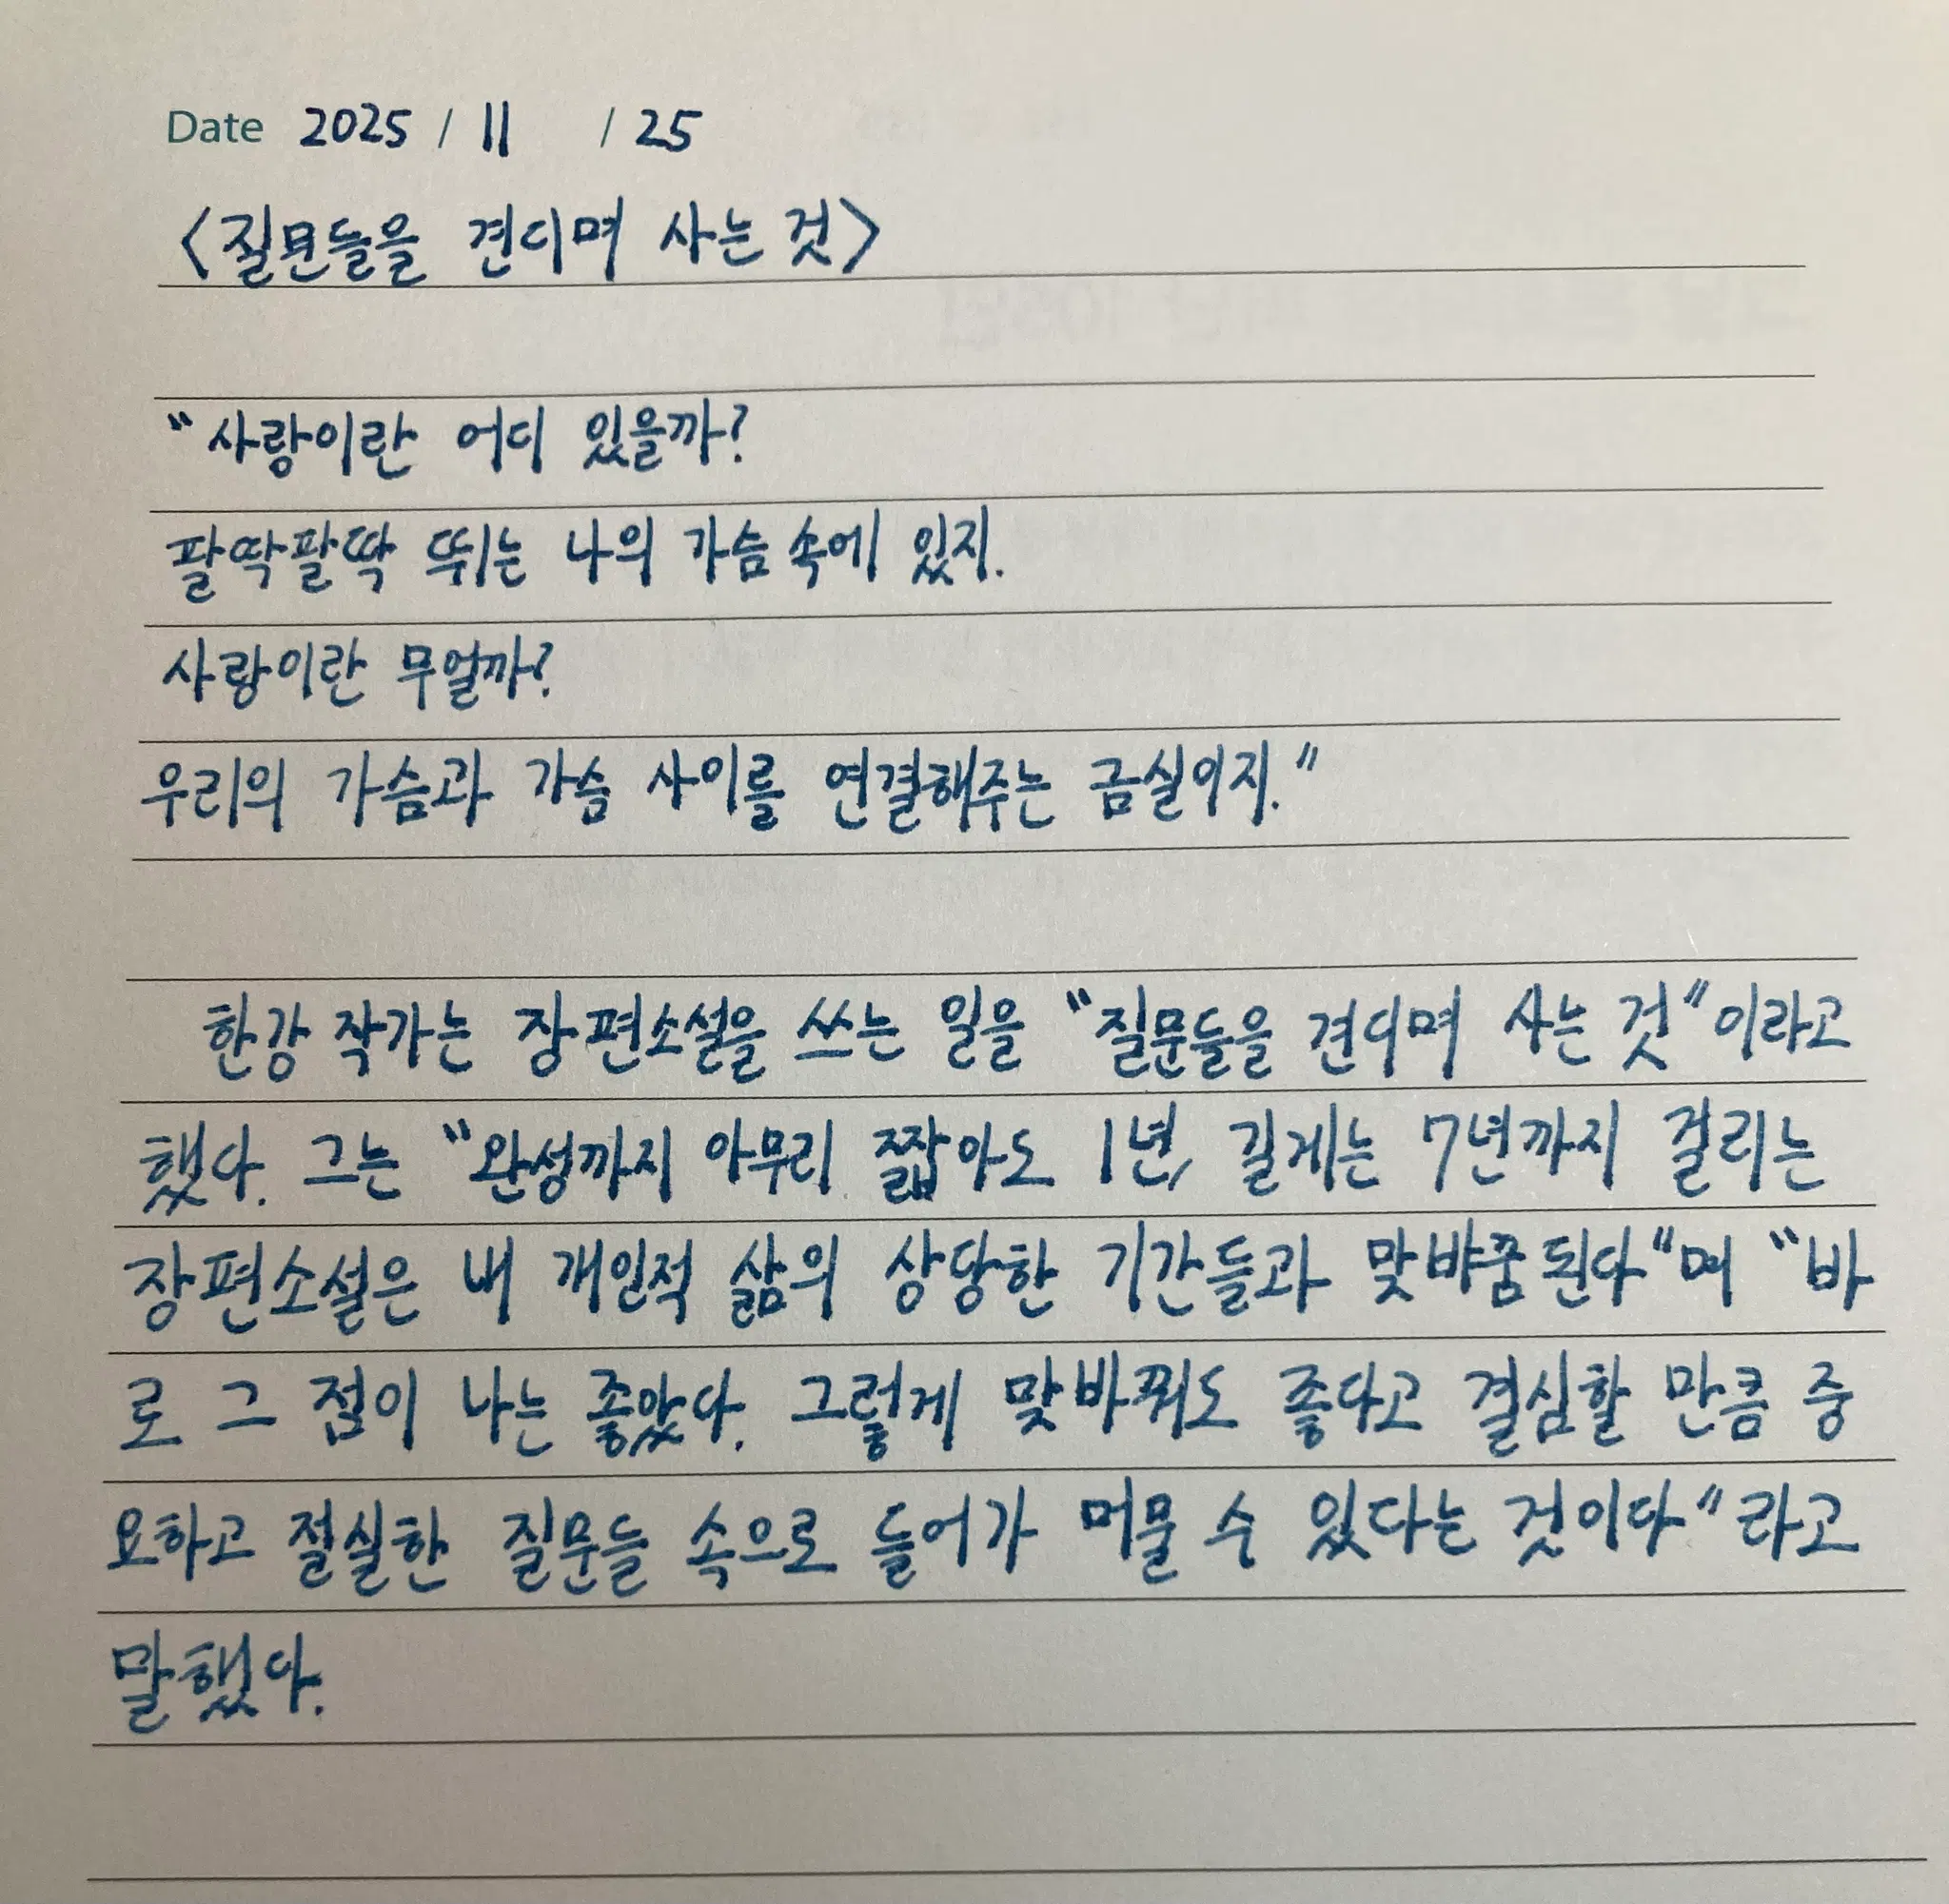 Date 2025 / 11 / 25
<질문들을 견디며 사는 것>
"사랑이란 어디 있을까?
팔딱팔딱 뛰는 나의 가슴 속에 있지.
사랑이란 무얼까?
우리의 가슴과 가슴 사이를 연결해주는 금실이지."
한강 작가는 장편소설을 쓰는 일을 "질문들을 견디며 사는 것"이라고
했다. 그는 "완성까지 아무리 짧아도 1년, 길게는 7년까지 걸리는
장편소설은 내 개인적 삶의 상당한 기간들과 맞바꿈된다"며 "바
로 그 점이 나는 좋았다. 그렇게 맞바꿔도 좋다고 결심할 만큼 중
요하고 절실한 질문들 속으로 들어가 머물 수 있다는 것이다"라고
말했다.